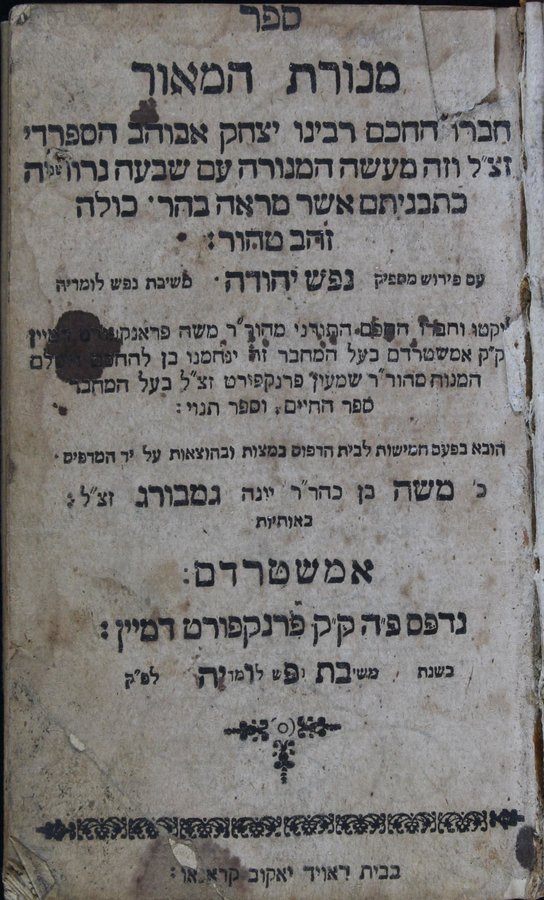 ספר
מנורת המאור
חברו החכם רבינו יצחק אבוהב הספרדי
זצ"ל וזה מעשה המנורה עם שבעה
כתבניתם אשר מראה בהר׳ כולה
זהב טהור:
עם פירוש מספיק נפש יהודה׳ משיבת נפש לומדיה
וחברו החכם התורני מהור"ר משה
ק"ק אמשטרדם בעל המחבר זה ינחמנו בן
המנוח מהור"ר שמעון פרנקפורט זצ"ל בעל המחבר
ספר החיים, וספר תנוי:
הובא בפעם חמישות לבית הדפוס במצות ובהוצאות על יד המדפיס׳
כ׳ משה בן כהר"ר יונה גמבורג זצ"ל:
באותיות
אמשטרדם:
נדפס פ"ה ק"ק פרנקפורט דמיין:
בשנת משיבת נפש לומדיה לפ"ק
בבית דאויד יאקוב